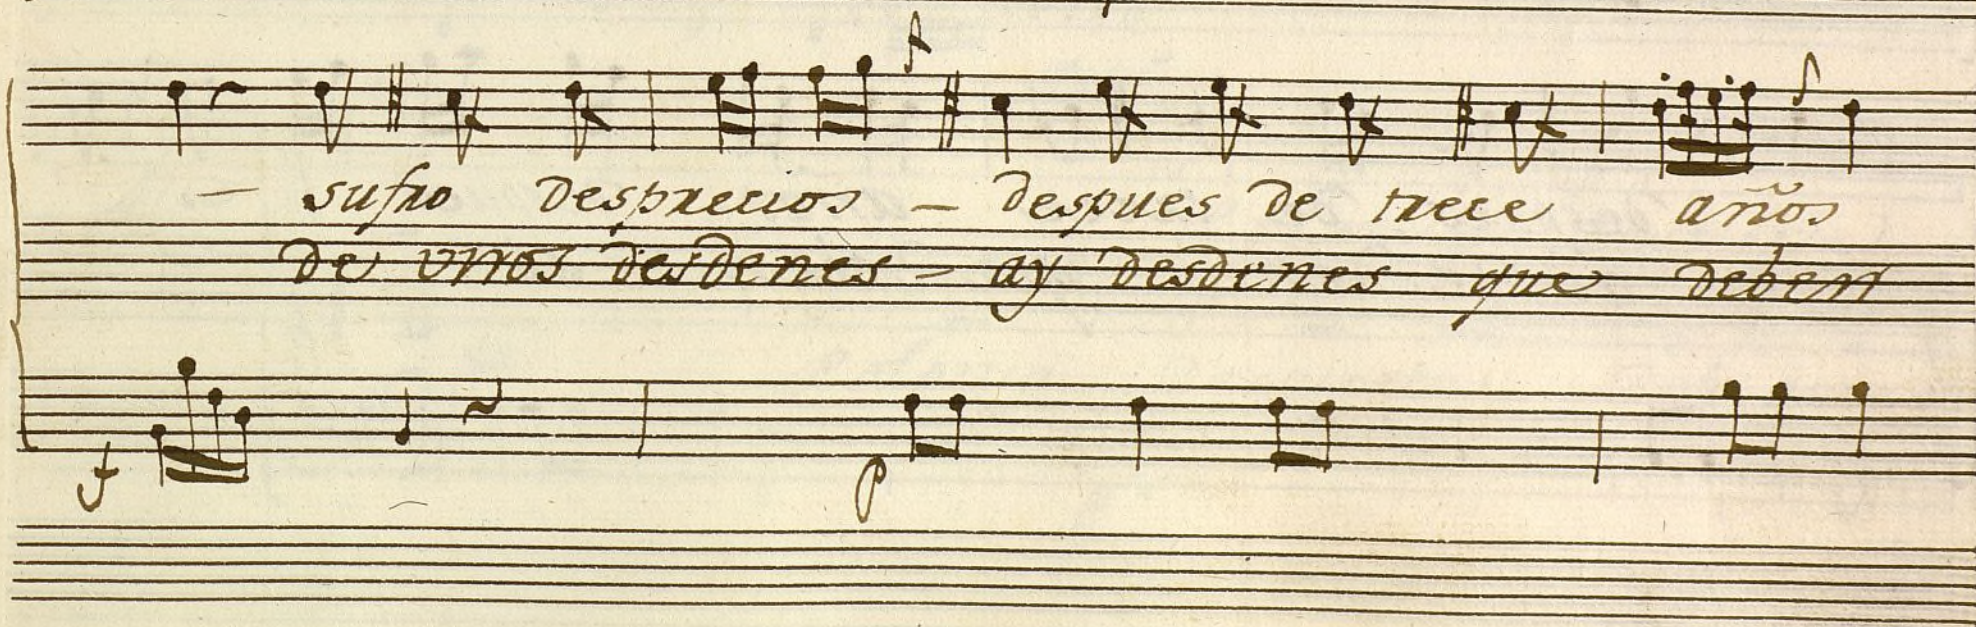 — sufro desprecios — despues de trece años
de unos desdenes — ay desdenes que deben
f p